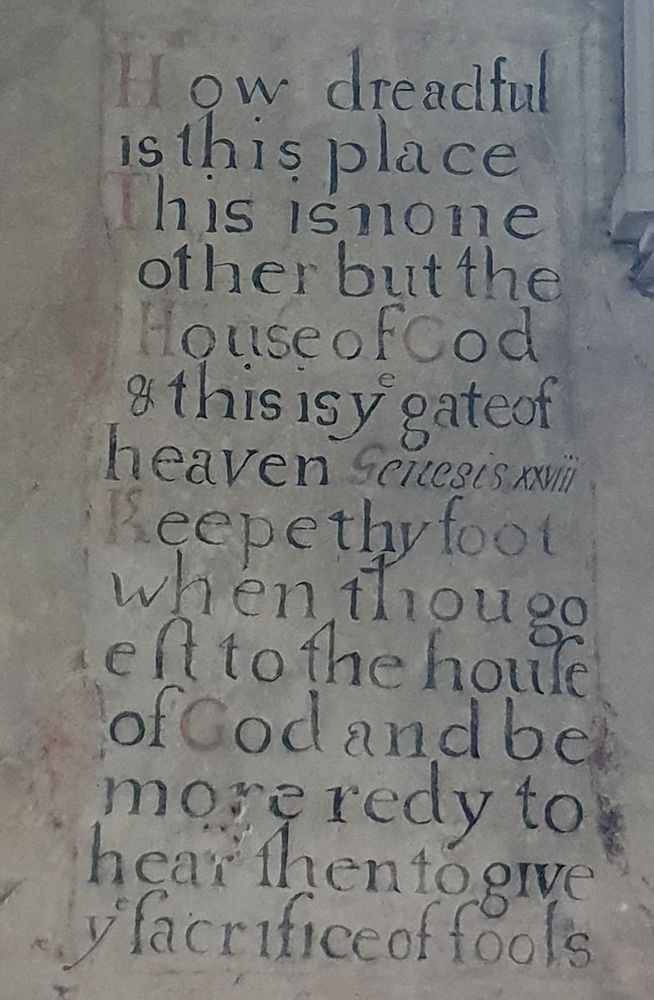 How dreadful
is this place
This is none
other but the
House of God
& this is yͤ gate of
heaven Genesis xxviij
Keepe thy foot
when thou go
eſt to the houſe
of God and be
more redy to
hear then to give
yͤ ſacrifice of fools